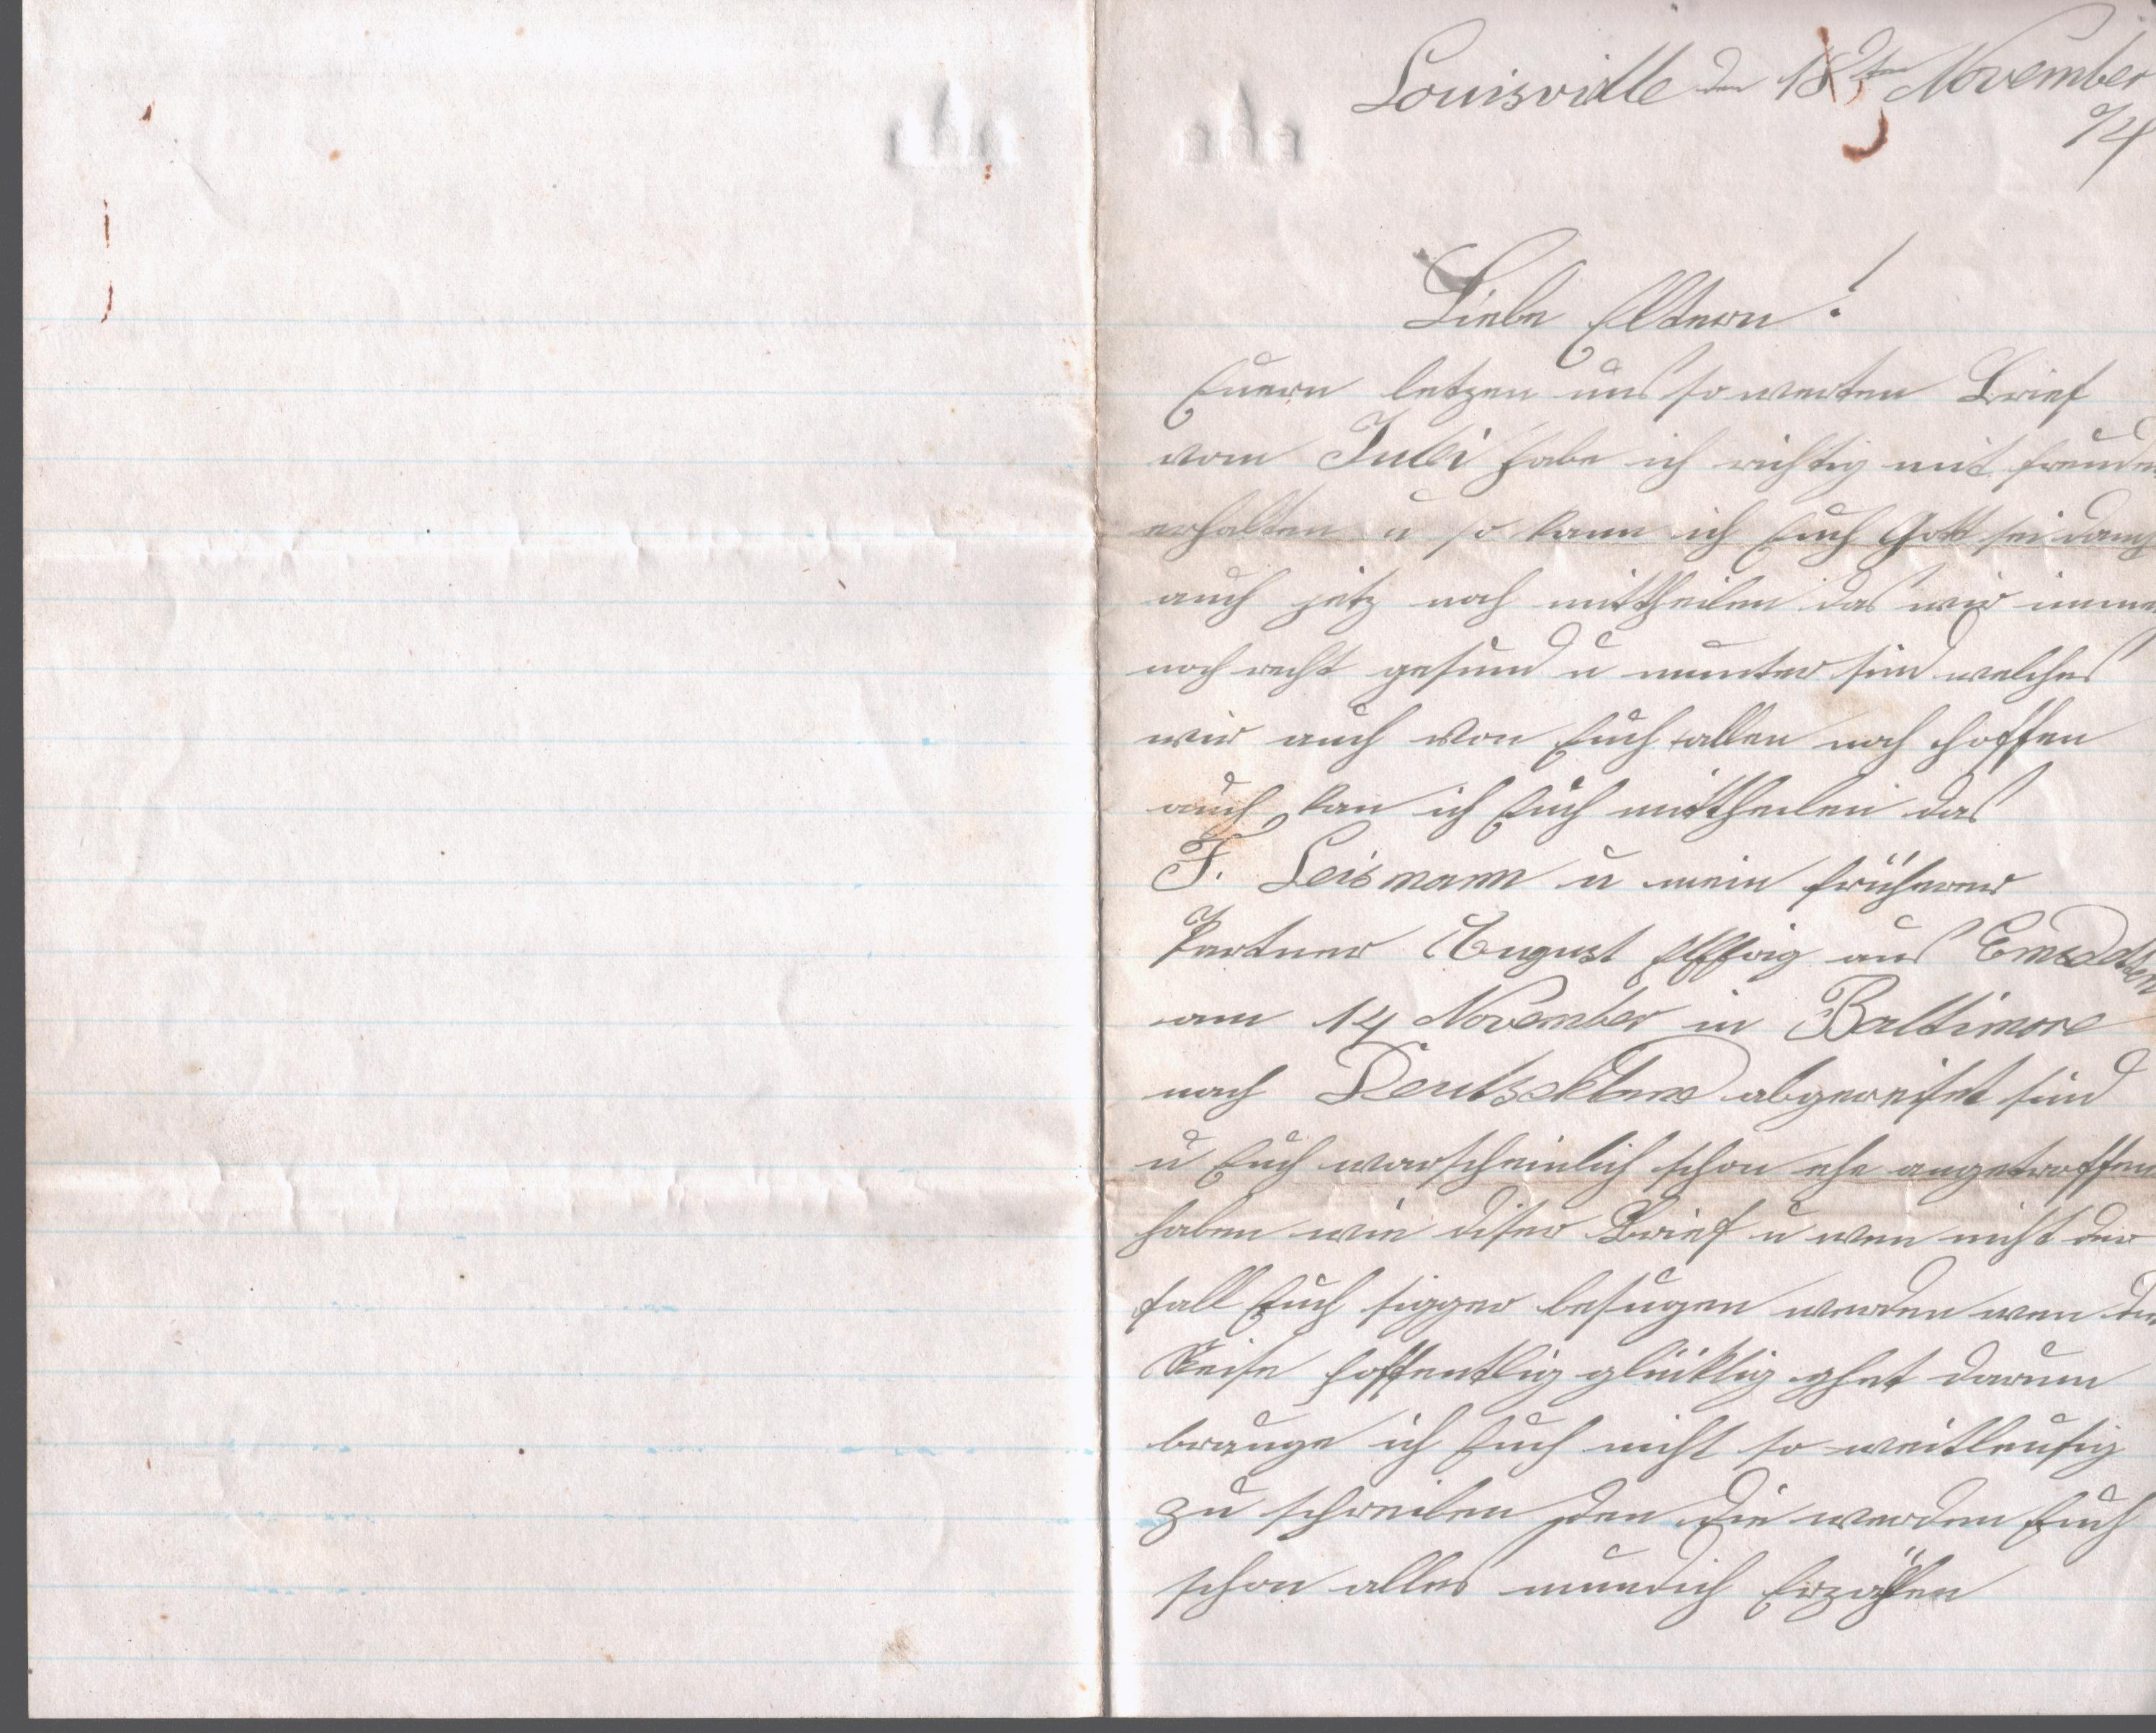 Louisville den 18ten November
94
Liebe Eltern!
Euern letzen uns so werten Brief
vom Juli habe ich richtig mit freuden
erhalten u so kann ich Euch Gott sei dank
auch jetz noch mittheilen das wir immer
noch recht gesund u munter sind welches
wir auch von Euch allen noch hoffen
auch kan ich Euch mittheilen das
F. Leismann u mein früherer
Partner August aus Emsdetten
am 14 November in Baltimore
nach Deutschland abgereist sind
u Euch warscheinlich schon ehe angetroffen
haben wie diser Brief u wen nicht der
fall Euch sigger besugen werden wen die
Reise hoffentlig glücklig ghet darum
brauge ich Euch nicht so weitleufig
zu schreiben den die werden Euch
schon alles mundich Erzählen